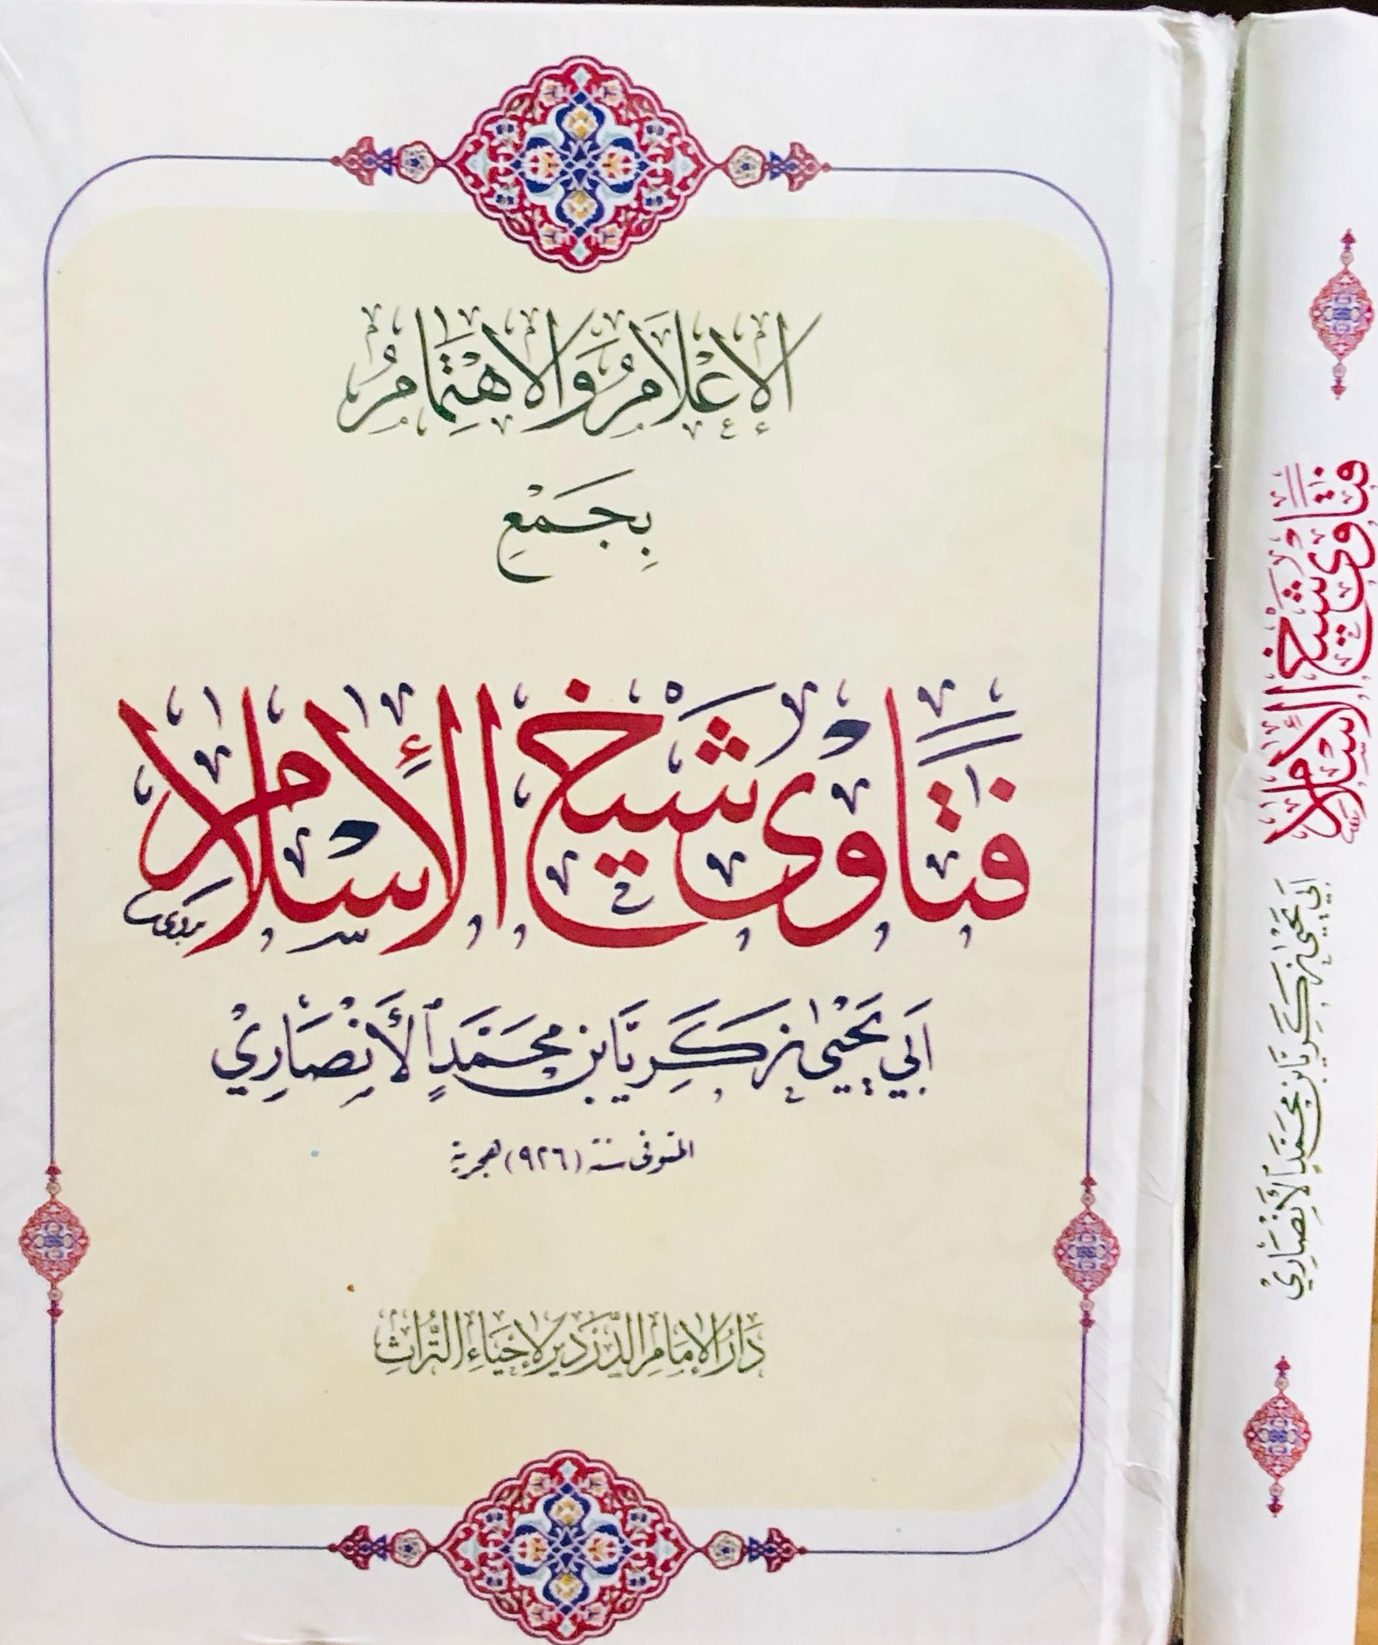 الإِعْلَامُ وَالاهْتِمَامُ
بِجَمْعِ
فَتَاوَى شَيْخِ الإِسْلَامِ
أَبِي يَحْيَى زَكَرِيَّا بْنِ مُحَمَّدٍ الأَنْصَارِيِّ
المتوفى سنة (٩٢٦) هجرية
دَارُ الإِمَامِ الدَّرْدِيرِ لإِحْيَاءِ التُّرَاثِ
فتاوى شيخ الإسلام
أبي يحيى زكريا بن محمد الأنصاري